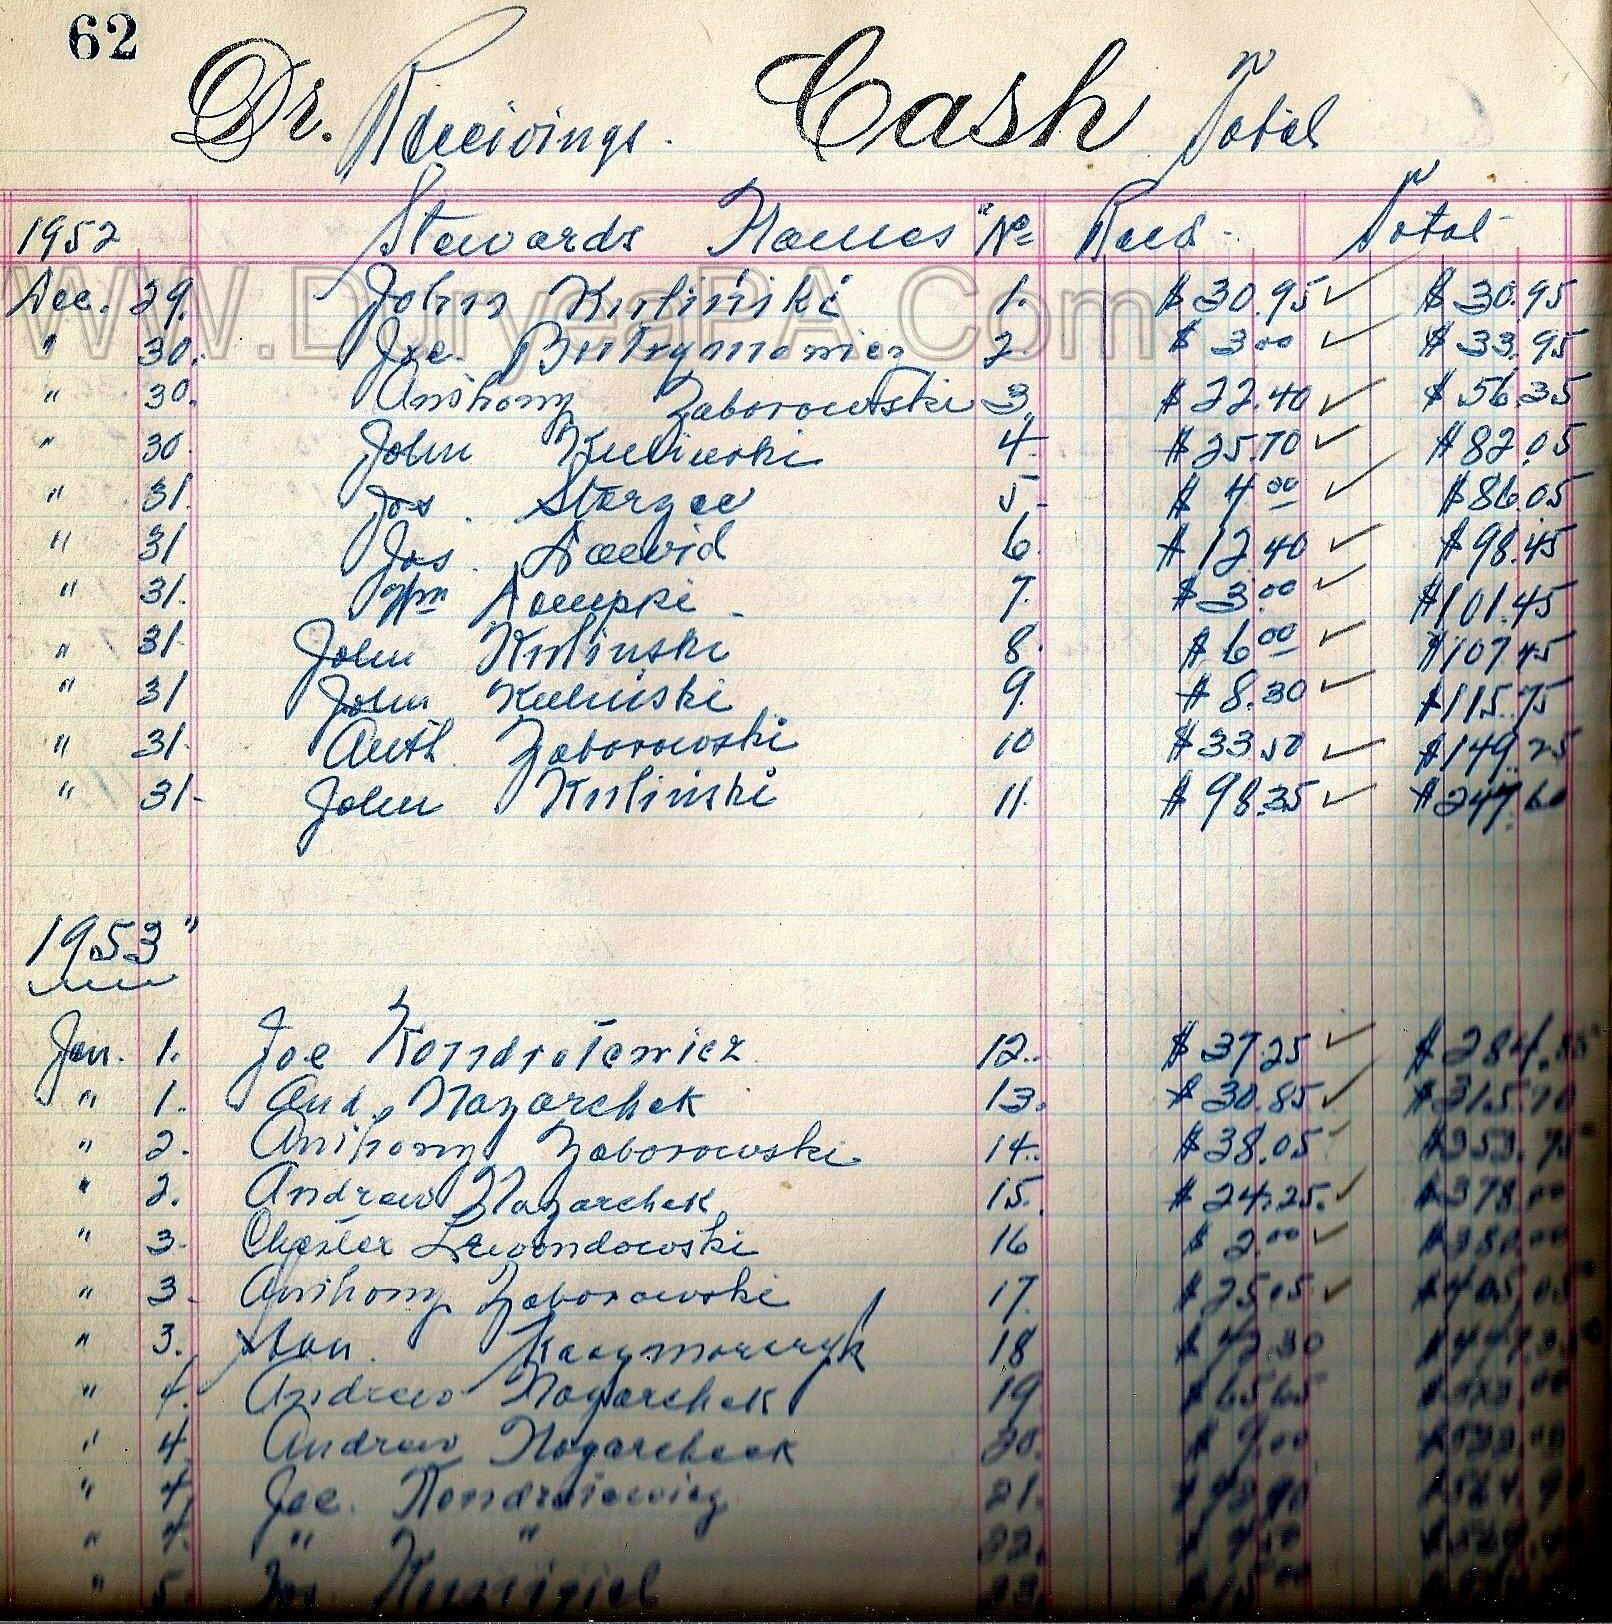 62
Dr. Receivings. Cash Total
1952 Stewards Names No Recd. Total
WWW.DuryeaPA.Com
Dec. 29. John Kulinski 1. $30.95 ✓ $30.95
" 30. Joe. Butrymowicz 2. $3.00 ✓ $33.95
" 30. Anthony Zaborowski 3. $22.40 ✓ $56.35
" 30. John Kulinski 4. $25.70 ✓ $82.05
" 31. Jos. 5. $4.00 ✓ $86.05
" 31 Jos. 6. $12.40 ✓ $98.45
" 31. Wm 7. $3.00 ✓ $101.45
" 31. John Kulinski 8. $6.00 ✓ $107.45
" 31 John Kulinski 9. $8.30 ✓ $115.75
" 31. Anth. Zaborowski 10 $33.50 ✓ $149.25
" 31. John Kulinski 11. $98.35 ✓ $247.60
1953"
Jan. 1. Joe Kondratowicz 12. $37.25 ✓ $284.85
" 1. And. Nazarchek 13. $30.85 ✓ $315.70
" 2. Anthony Zaborowski 14. $38.05 ✓ $353.75
" 2. Andrew Nazarchek 15. $24.25. ✓ $378.00
" 3. Chester Lewondowski 16 $2.00 ✓ $380.00
" 3. Anthony Zaborowski 17. $25.05 ✓ $405.05
" 3. Stan. Kaczmarczyk 18 $42.30 $447.35
" 4. Andrew Nazarchek 19 $65.65
" 4. Andrew Nazarcheck 20.
" 4. Joe. Kondratowicz 21.
" 4. " " 22.
" 5. Jos 23 $15.00